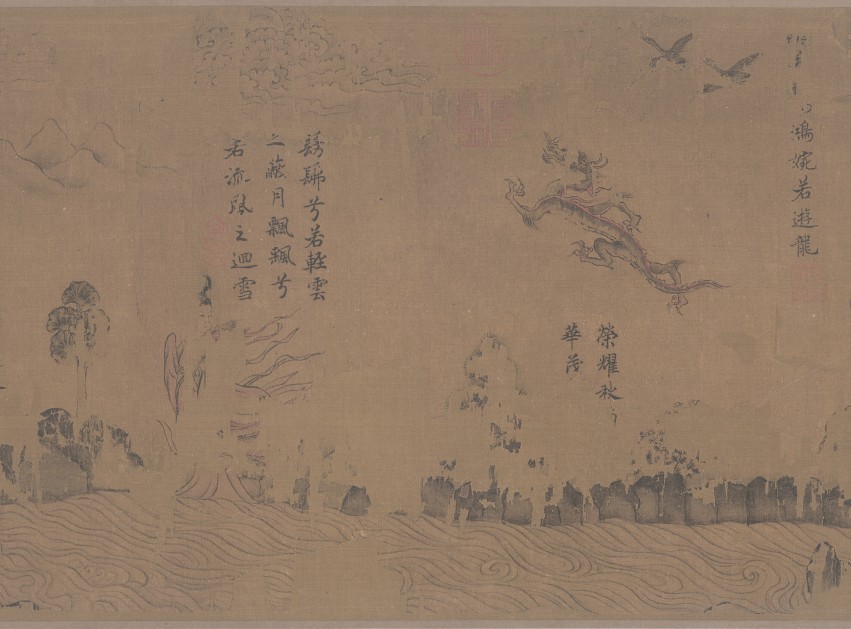 鴻婉若遊龍
榮耀秋
華茂
髣髴兮若輕雲
之蔽月飄飄兮
若流風之迴雪